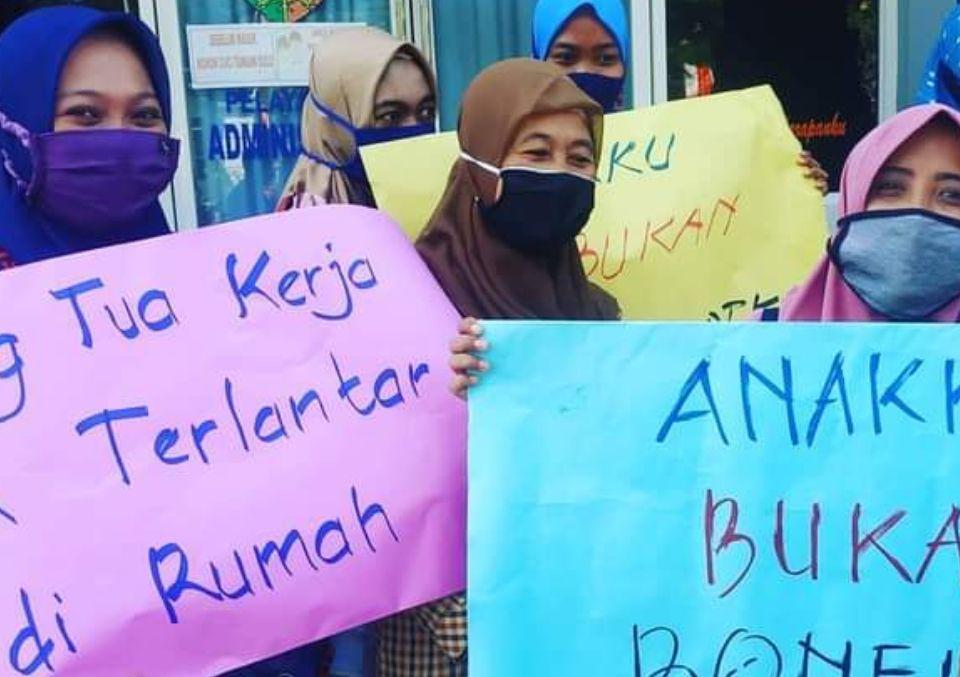 PELAYA
ADMINI
KU
BUKAN
g Tua Kerja
Terlantar
di Rumah
ANAKK
BUKA
BONEK